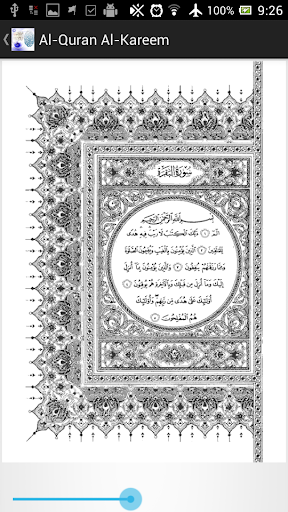 100%
9:26
Al-Quran Al-Kareem
سورة البقرة
بسم الله الرحمن الرحيم
الم ۝ ذلك الكتب لا ريب فيه هدى
للمتقين ۝ الذين يؤمنون بالغيب ويقيمون الصلوة
ومما رزقنهم ينفقون ۝ والذين يؤمنون بما أنزل
إليك وما أنزل من قبلك وبالآخرة هم يوقنون ۝
أولئك على هدى من ربهم وأولئك
هم المفلحون ۝